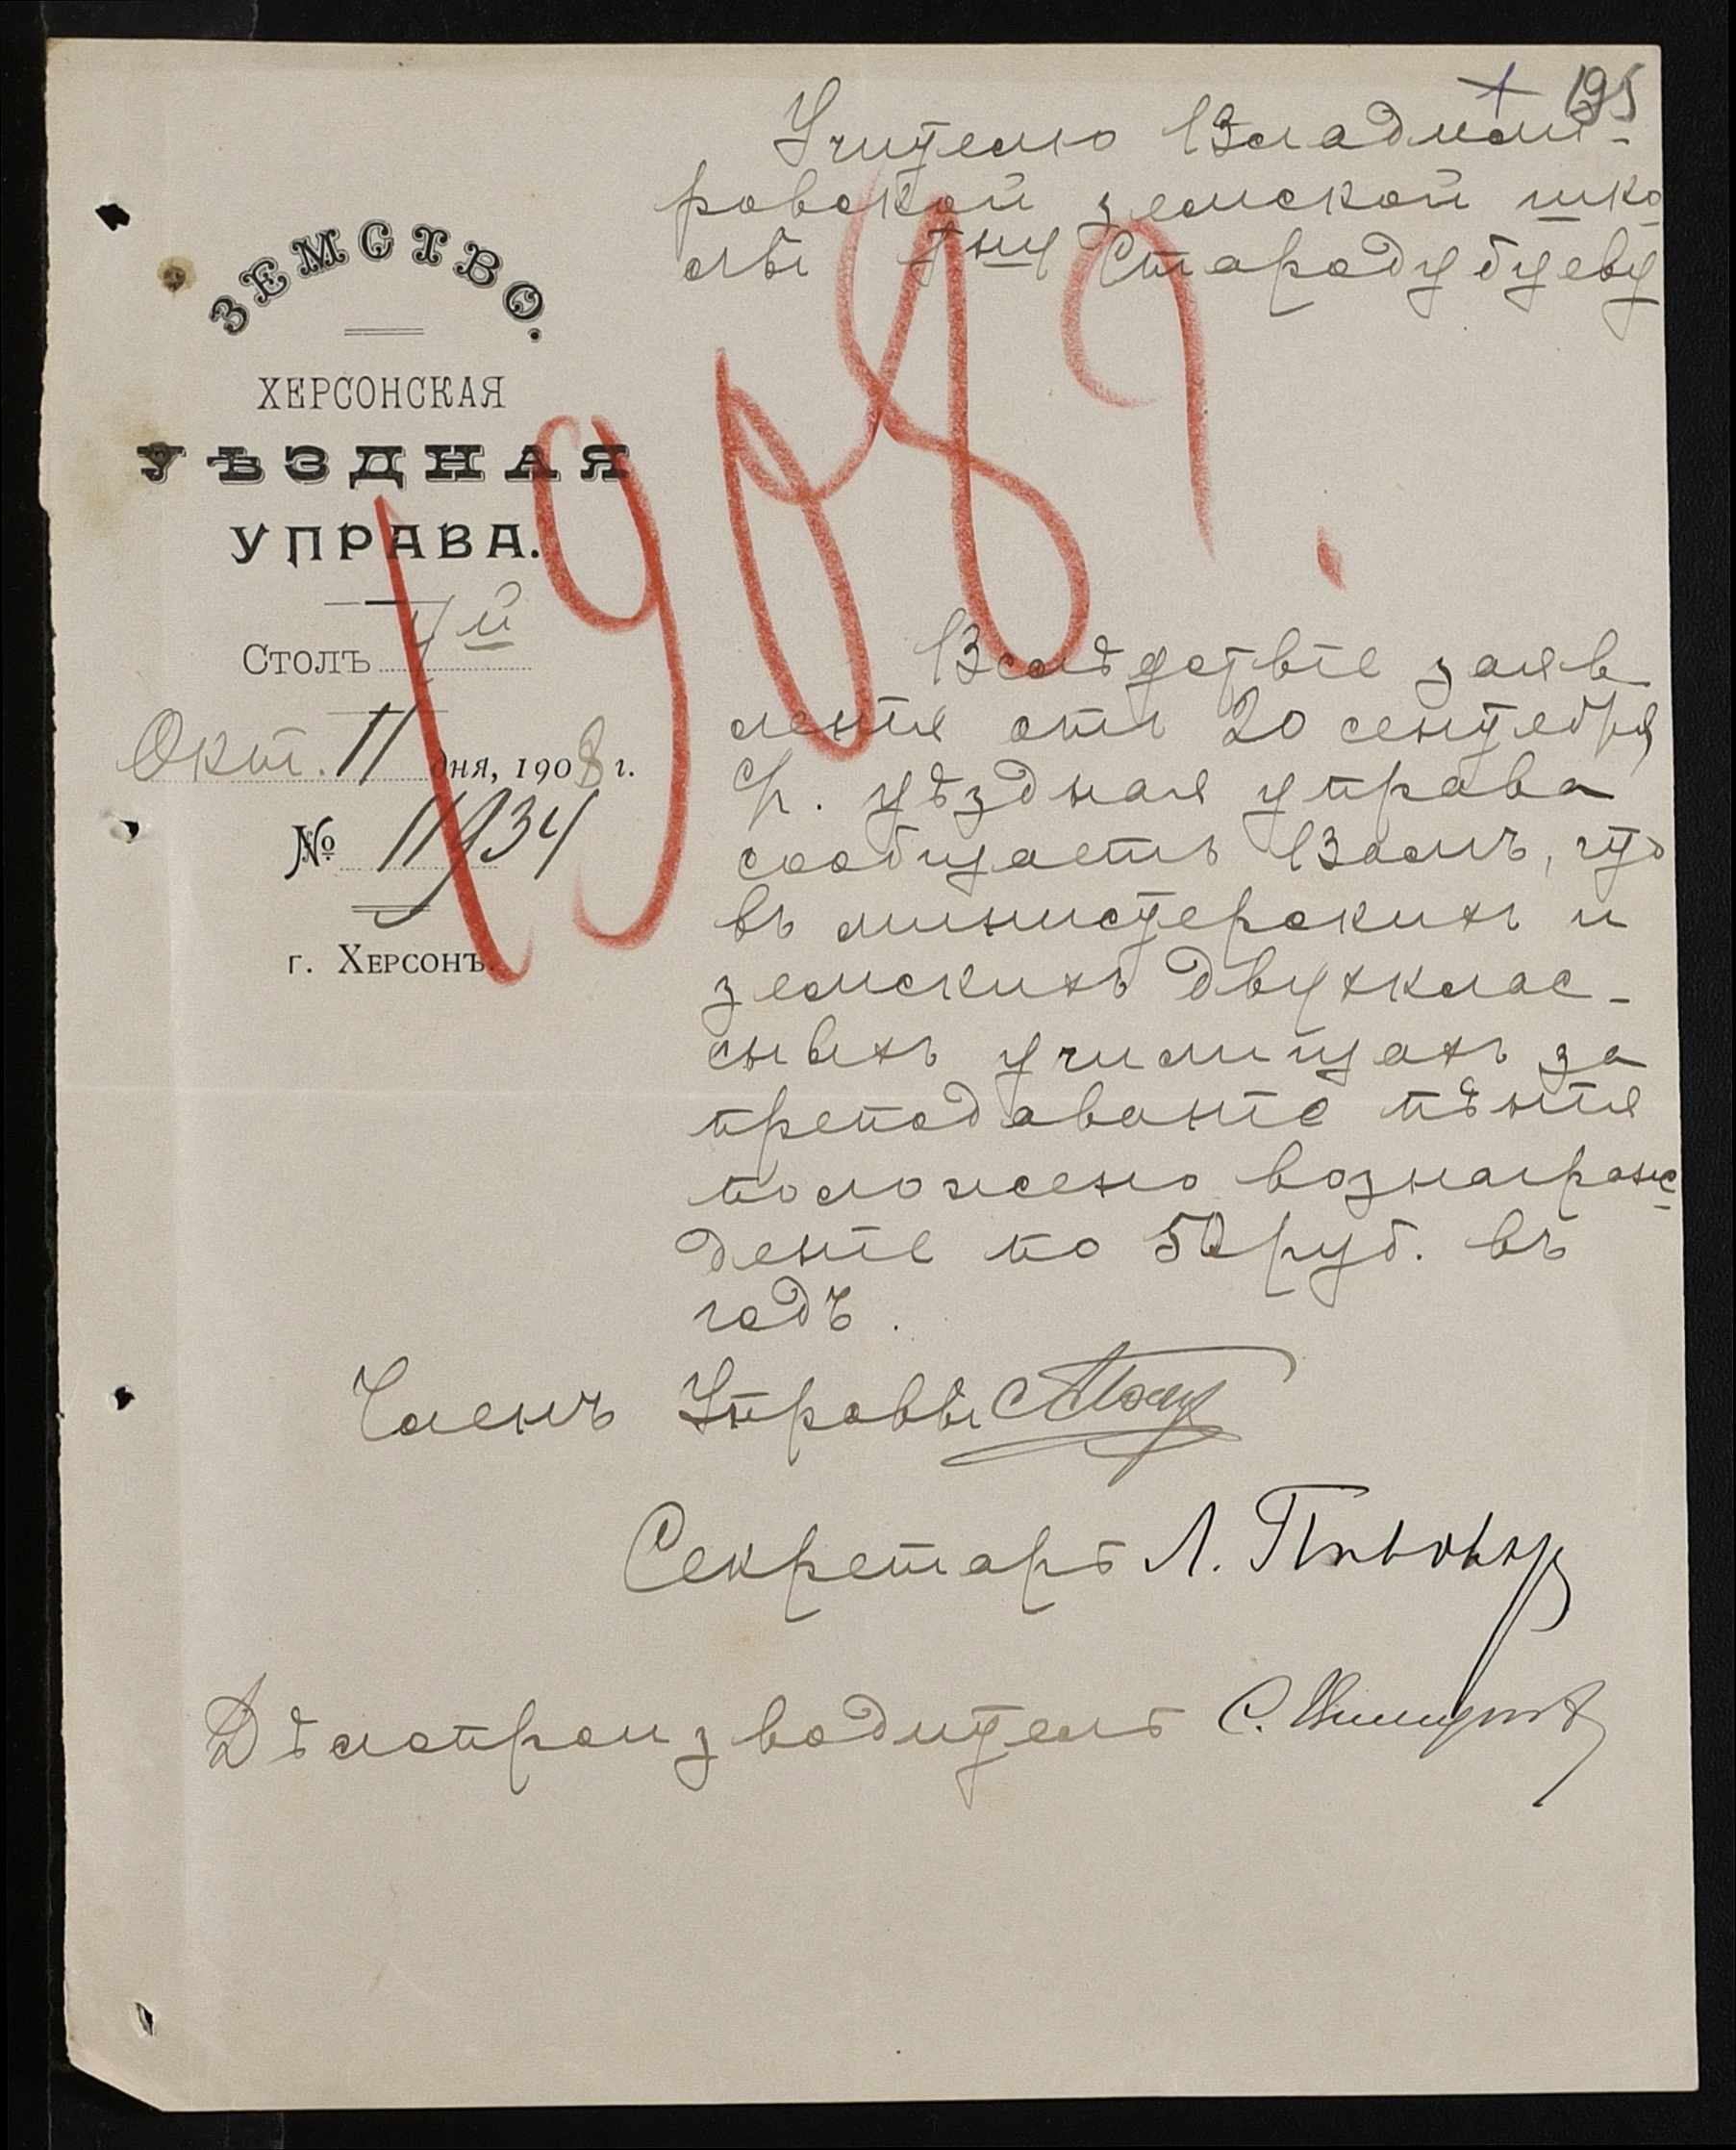 195
Учителю Владими-
ровской земской шко
лы Г ну Стародубцеву
ЗЕМСТВО.
ХЕРСОНСКАЯ
УѢЗДНАЯ
УПРАВА.
Столъ 4й
Окт. 11 дня, 1908 г.
№ 11934
г. Херсонъ.
1908 г.
Вслѣдствіе заяв
ленія отъ 20 сентября
с/г. уѣздная управа
сообщаетъ Вамъ, что
въ министерскихъ и
земскихъ двухклас-
сныхъ училищахъ за
преподаваніе пѣнія
положено вознаграж-
деніе по 50 руб. въ
годъ.
Членъ Управы
Секретарь Л.
Дѣлопроизводитель С.